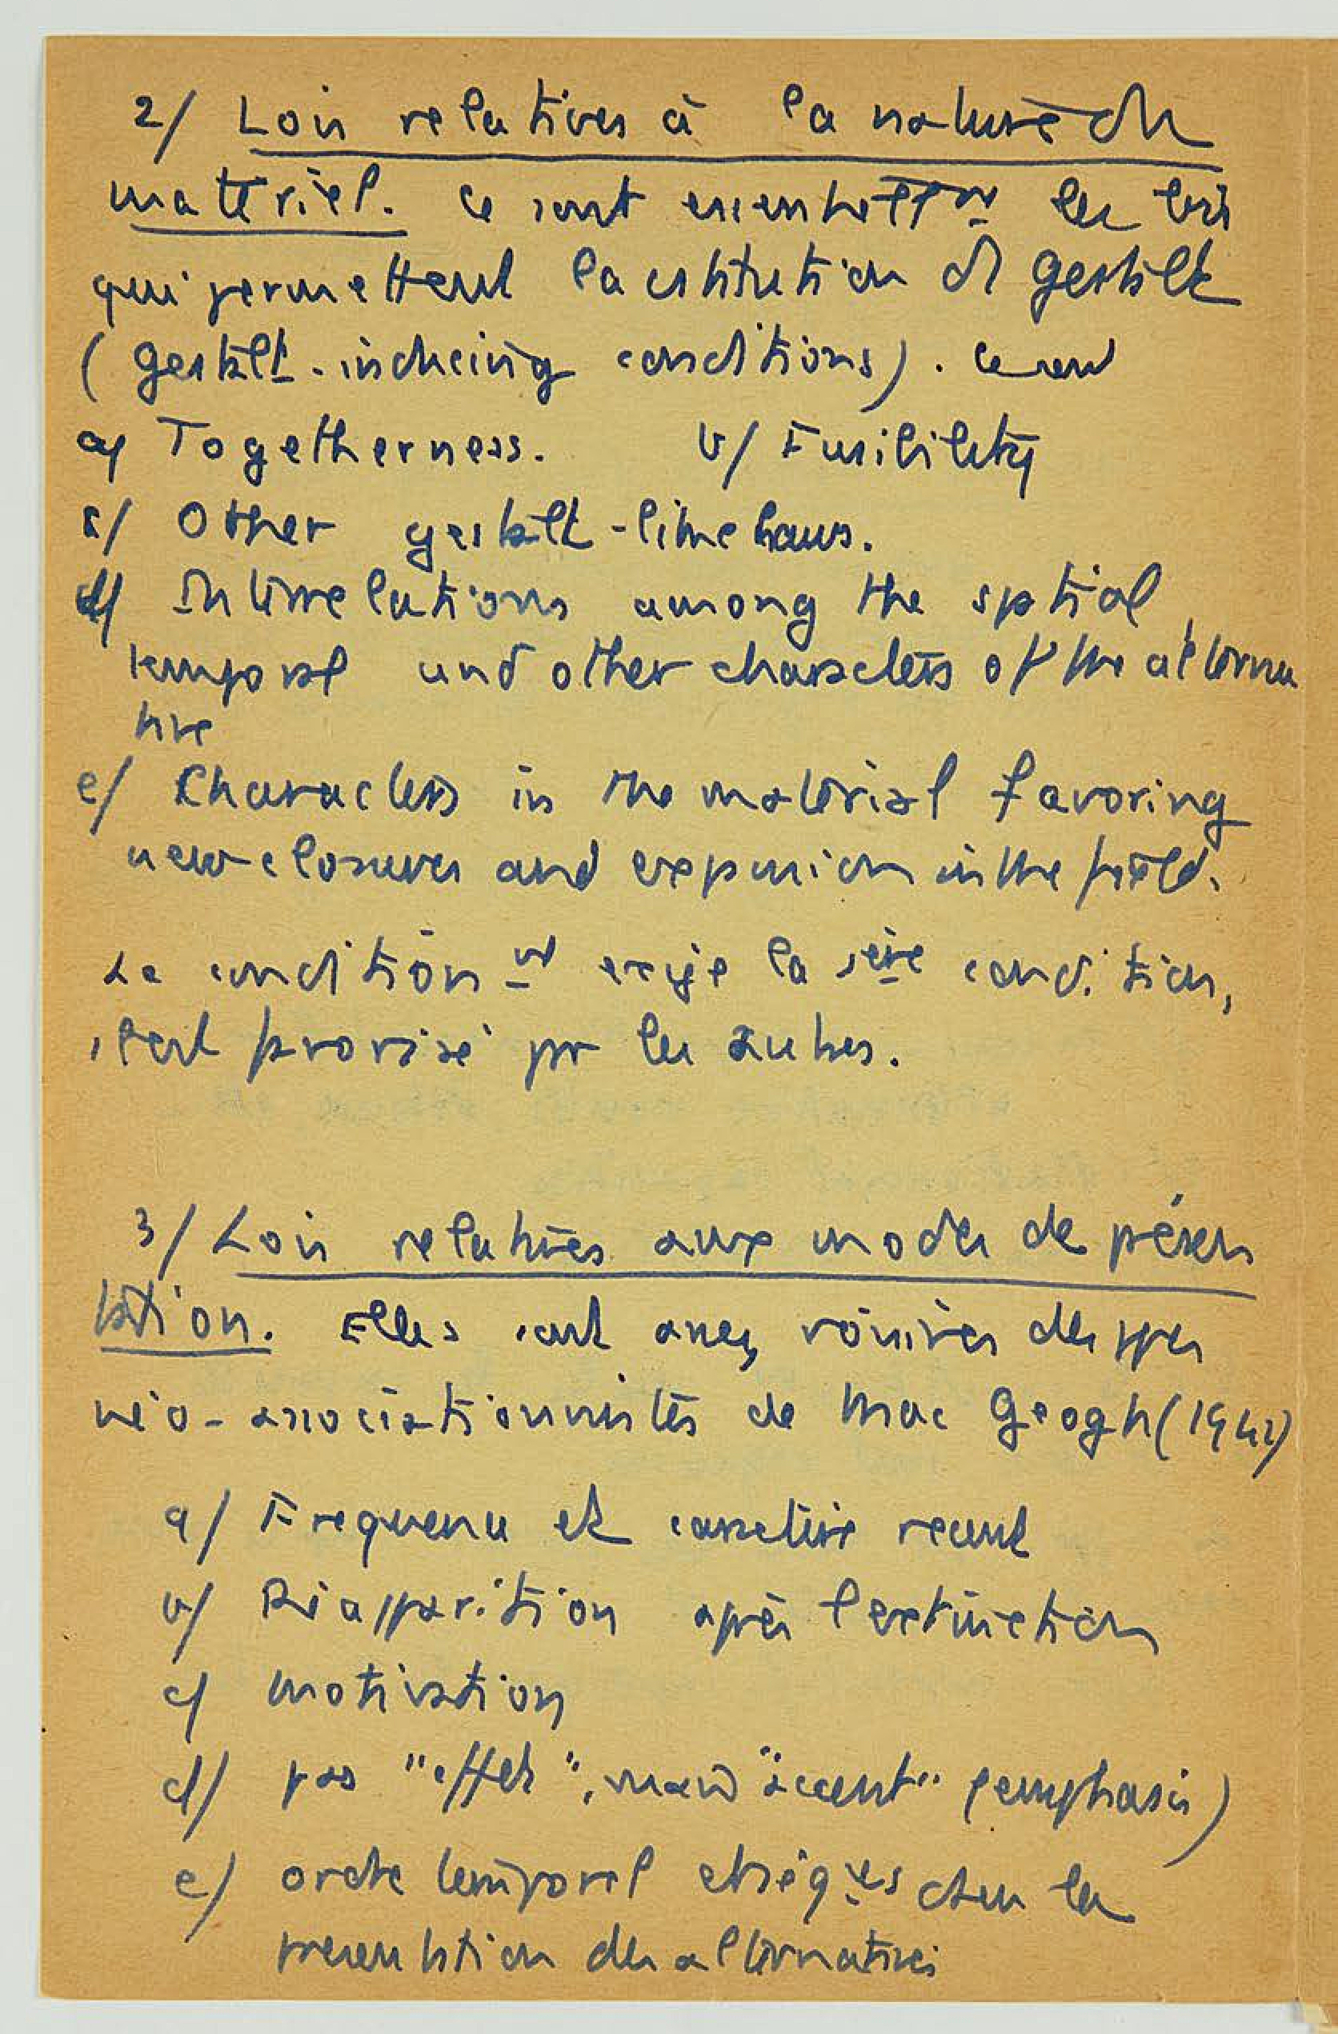 2/ Lois relatives à la nature du
matériel. Ce sont essentiellm les lois
qui permettent la cstitution de gestalt
(gestalt-inducing conditions). Ce sont
a/ Togetherness. b/ Fusibility
c/ Other gestalt-like laws.
d/ Interrelations among the spatial,
temporal and other characters of the alterna
tive
e/ Characters in the material favoring
new closures and expansion in the field.
La condition exige la condition,
est favorisé pr les autres.
3/ Lois relatives aux modes de présen
tation. Elles sont assez voisines des
néo-associationnistes de Mac Geogh (1942)
a/ Frequence et caractère récent
b/ Réapparition après l'extinction
c/ motivation
d/ pas "effet", mais "accent" (emphasis)
e/ ordre temporel ds la
présentation des alternatives